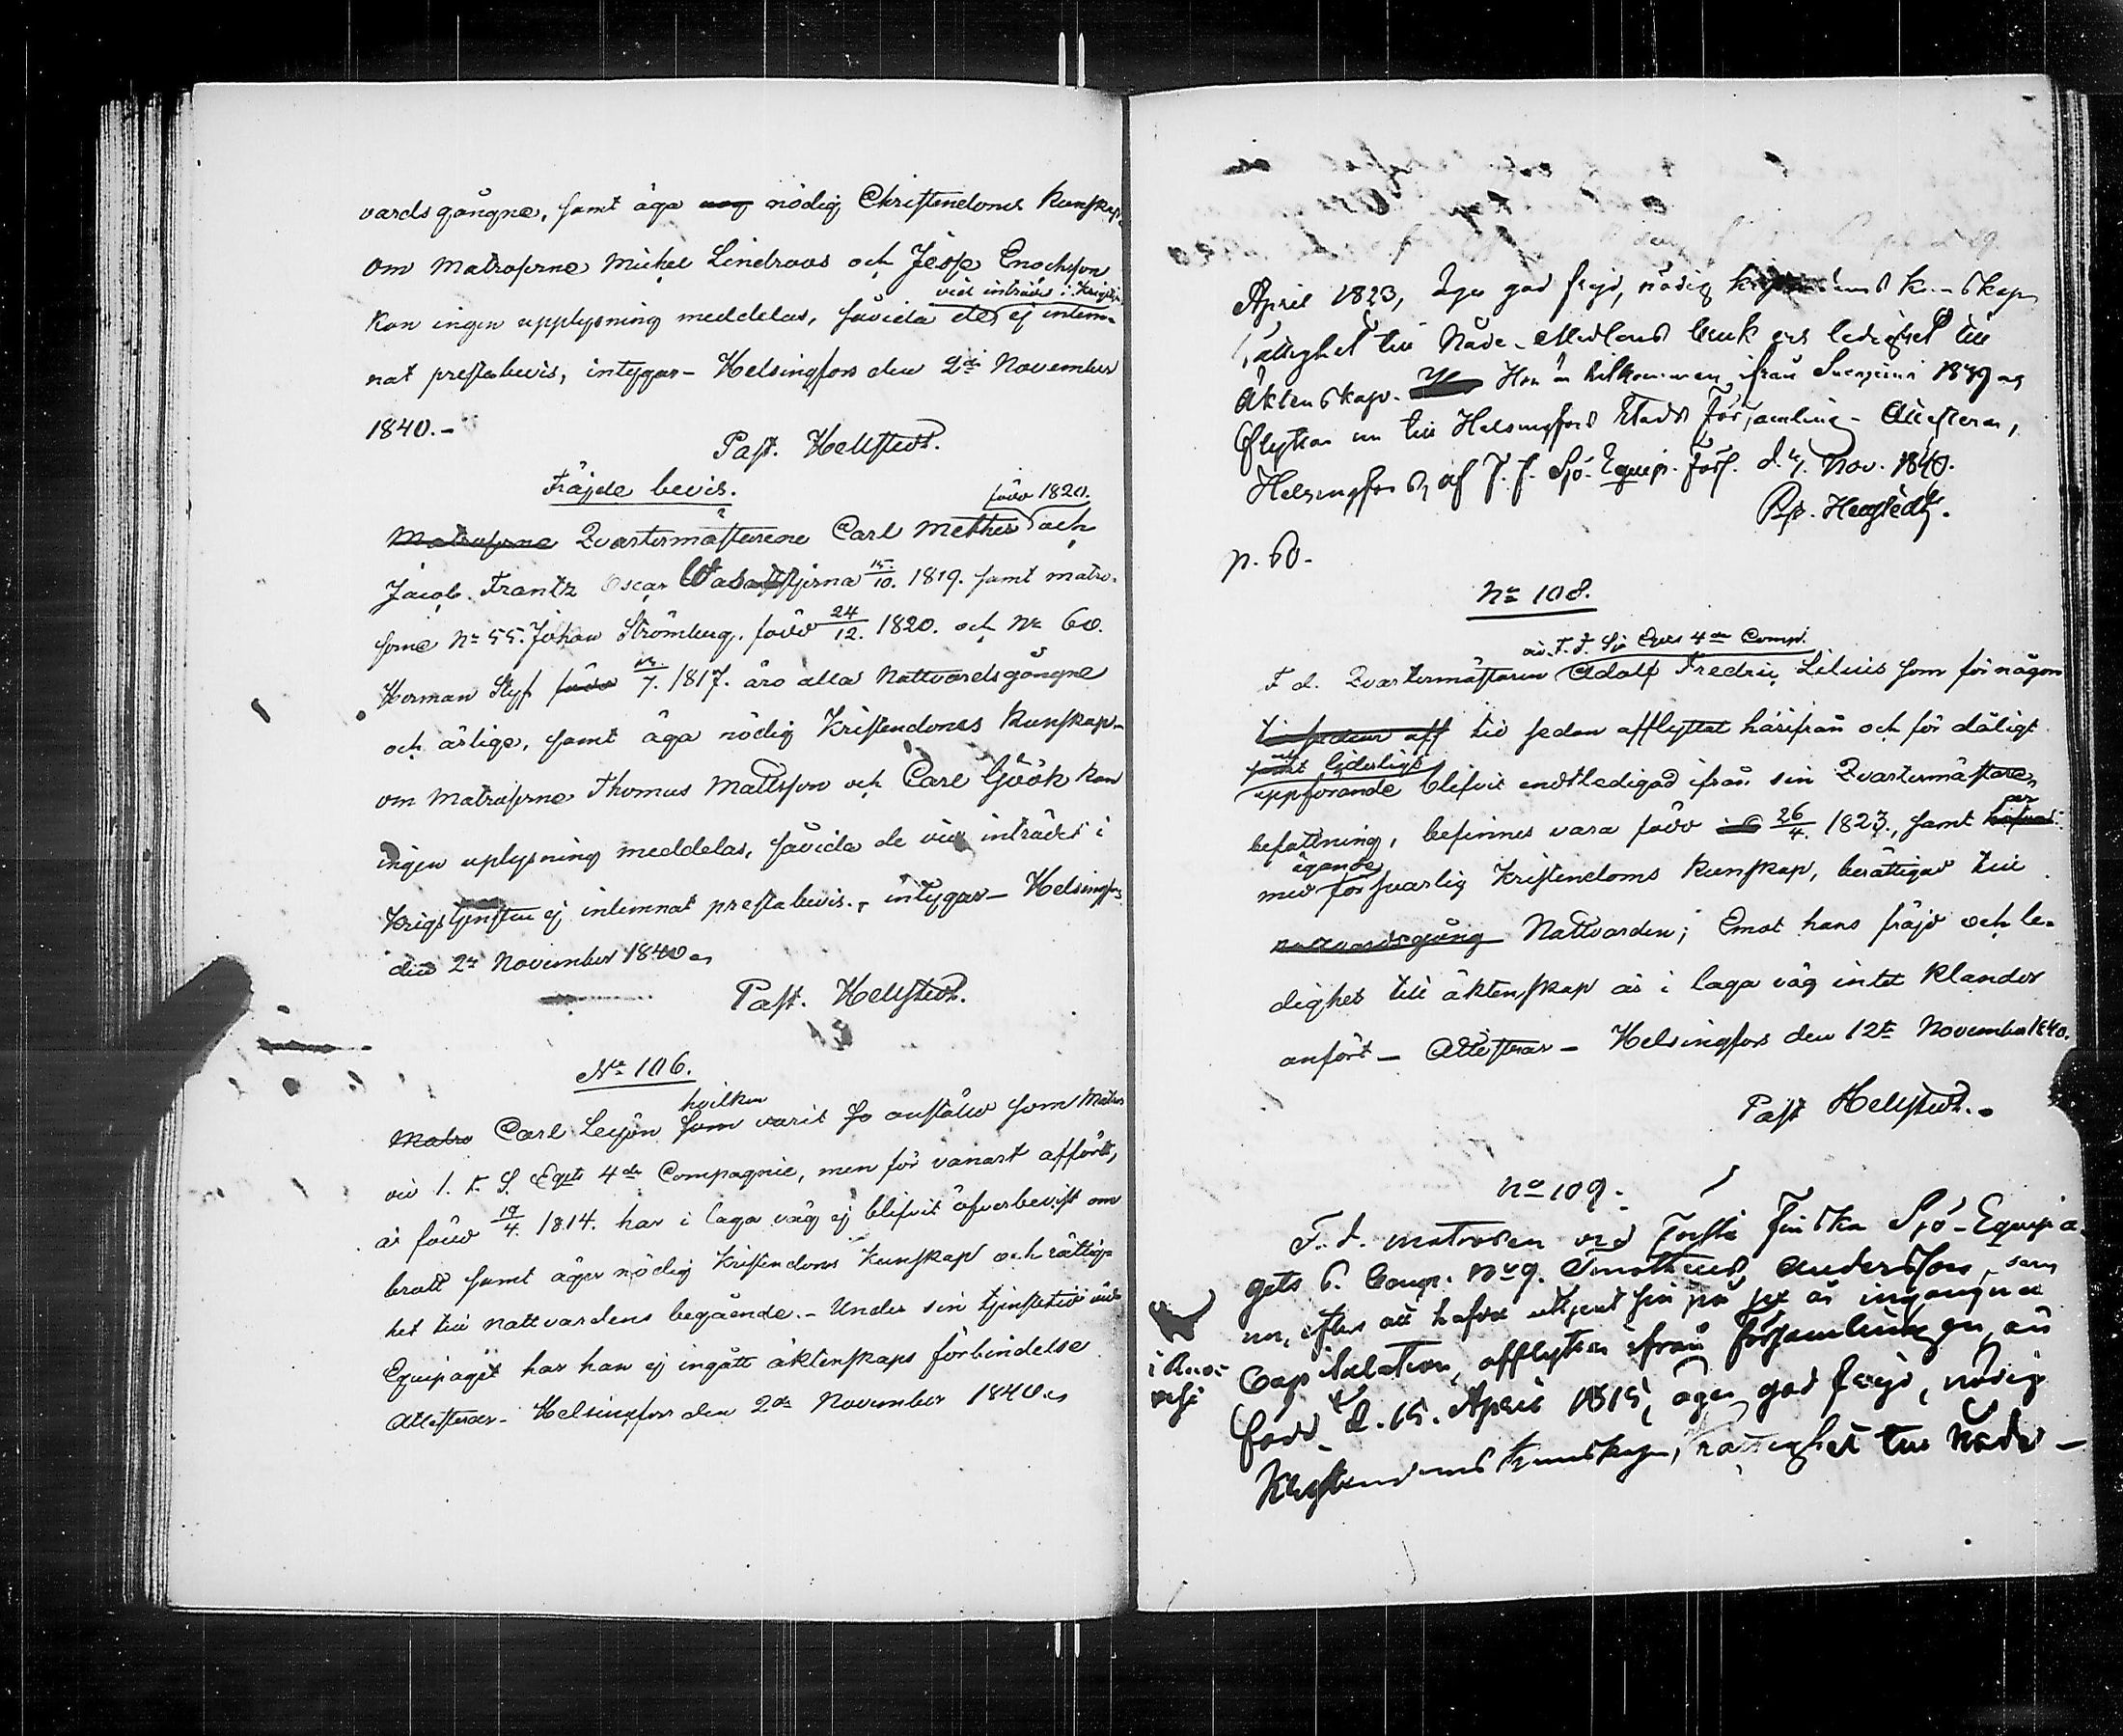 vardsgångne, samt äga nödig Christendoms Kunskap,
Om Matroserne Michel Lindroos och Jesse Enochsson
vid inträdet i Krigstj.
kan ingen upplysning meddelas, såvida de ej inlem-
nat prestabevis, intygar - Helsingfors den 2de November
1840.-
Past. Hellstedt.
Fräjde bevis.
född 1820.
Matroserne Qvartermästarene Carl Mether och
Jacob Frantz Oscar Wasastjerna 15/10. 1819. samt matro-
serne No 55. Johan Strömberg, född 24/12. 1820. och No 60.
Herman Styf född /7. 1817. äro alla Nattvardsgångne
och ärlige, samt äga nödig Kristendoms Kunskap-
om Matroserne Thomas Mattsson och Carl Göök kan
ingen uplysning meddelas, såvida de vid inträdet i
Krigstjensten ej inlemnat prestabevis., intygar - Helsingfors
den 2de November 1840.
Past. Hellstedt.
No 106.
hvilken
Matro Carl Lejon som varit anställd som Matros
vid 1. F. S. Eqts 4de Compagnie, men för vanart afförd,
är född 19/4. 1814. har i laga väg ej blifvit öfverbevist om
brott samt äger nödig Kristendoms Kunskap och rättig-
het till nattvardens begående. - Under sin tjenstetid vid
Equipaget har han ej ingått äktenskaps förbindelse
Attesteras - Helsingfors den 2de November 1840.
April 1823, äger god frejd, nödig Kunskap,
rättighet till Nåde-Medlens bruk och ledighet till
Äktenskap. Hon är hitkommen ifrån 1839 och
flyttar nu till Helsingfors Stads Församling - Attesteras,
Helsingfors, af F. F. Sjö-Equip. Förs. d. 4. Nov. 1840.
Past. Hellstedt.
p. 60.
No 108.
vid F. F. Sjö Eqts 4de Comp.
F d. Qvartermästaren Adolf Fredric Lilius som för någon
tid sedan aff tid sedan afflyttat härifrån och för dåligt
samt liderligt
uppförande blifvit endtledigad ifrån sin Qvartermästare
befattning, befinnes vara född 26/4. 1823., samt
ägande
med försvarlig Kristendoms Kunskap, berättigad till
nattvardsgång Nattvarden; Emot hans fräjd och le-
dighet till äktenskap är i laga väg intet klander
anfört - Attesteras - Helsingfors den 12te November 1840.
Past Hellstedt.
No 109.
F. d. matrosen vid Första Finska Sjö-Equipa-
gets 6. Comp. No 9. Timotheus Andersson, som
nu, efter att hafva uttjent sin på sex år ingångna
Capitulation, afflyttar ifrån Församlingen, är
född d. 15. April 1815, äger god frejd, nödig
Kristendoms Kunskap, rättighet till Nåde-